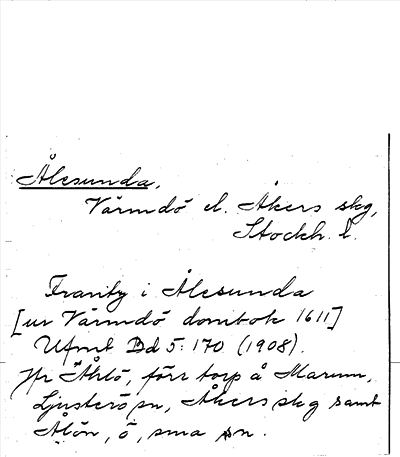 Ålesunda,
Värmdö el. Åkers skg,
Stockh. l.
Franby i Ålesunda
[ur Värmdö dombok 1611]
Ufmt Dd 5:170 (1908).
Jfr Åhlö, förr torp å Marum,
Ljusterö sn, Åkers skg samt
Ålön, ö, sma sn.